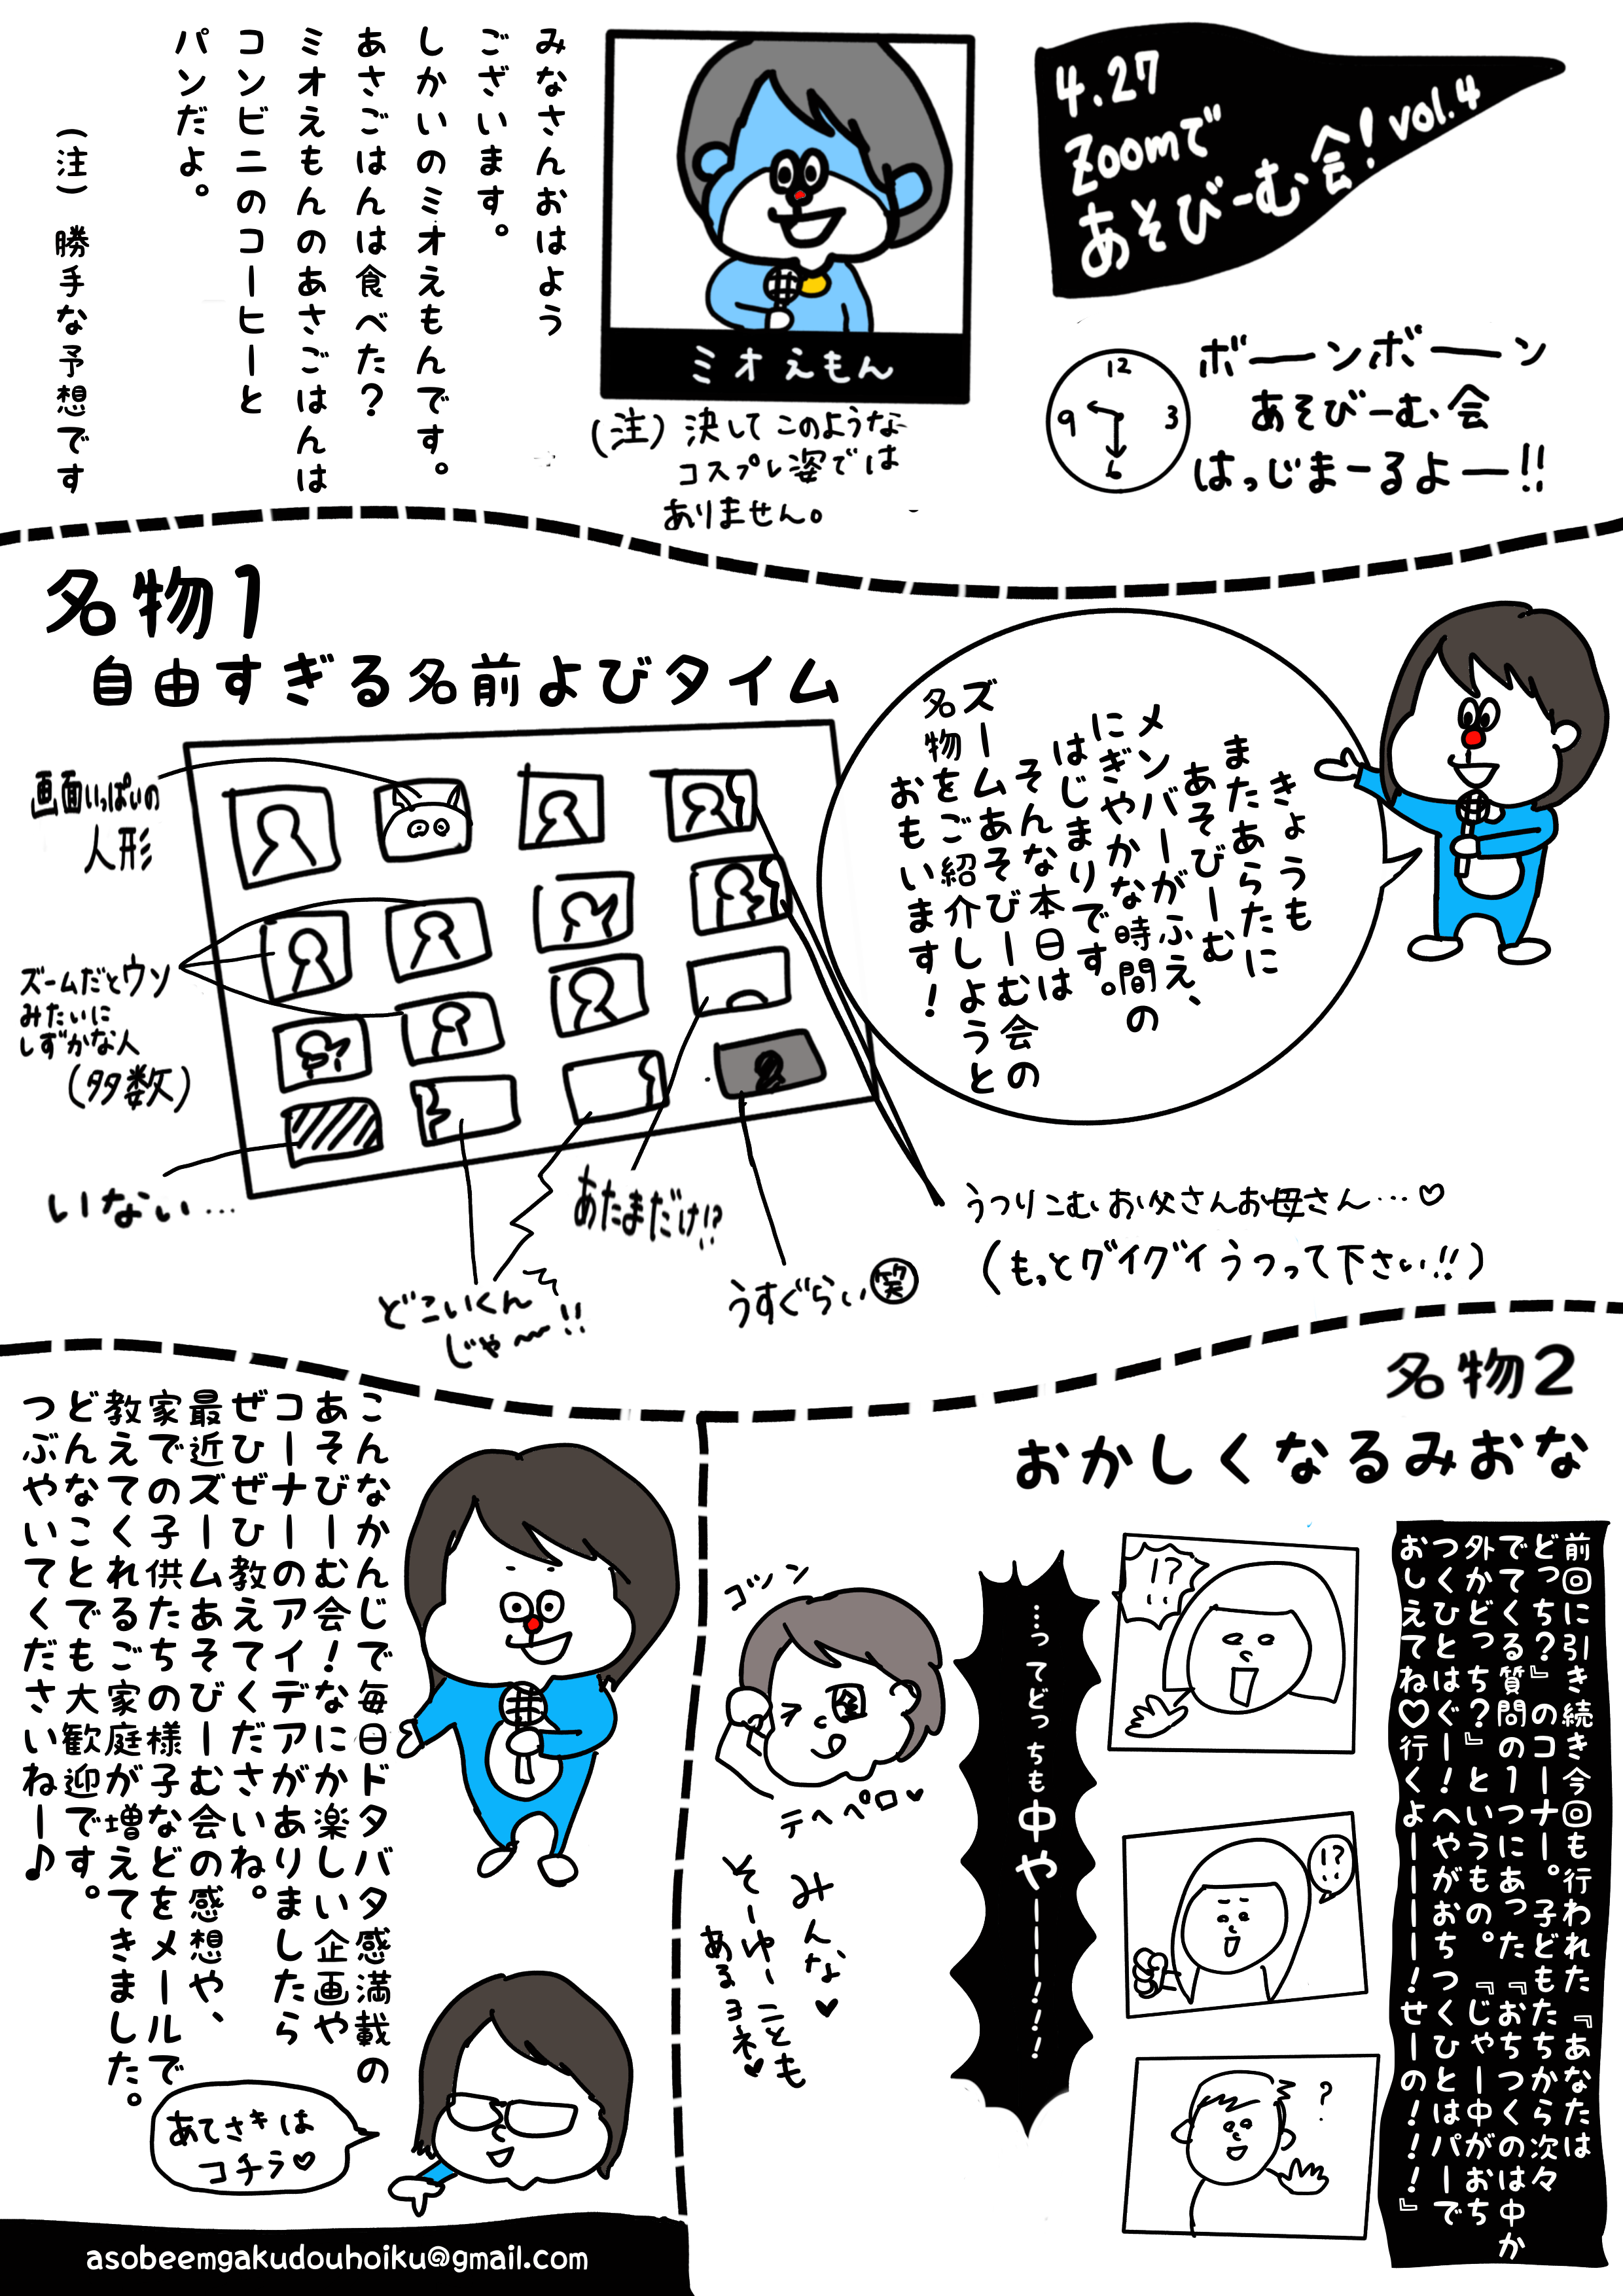 4.27
Zoomで
あそびーむ会!vol.4
ボーンボーン
あそびーむ会
はっじまーるよー!!
12
3
6
9
ミオえもん
(注)決してこのような
コスプレ姿では
ありません。
みなさんおはよう
ございます。
しかいのミオえもんです。
あさごはんは食べた?
ミオえもんのあさごはんは
コンビニのコーヒーと
パンだよ。
(注)勝手な予想です
名物1
自由すぎる名前よびタイム
きょうも
またあらたに
あそびーむ
メンバーがふえ、
にぎやかな時間の
はじまりです。
そんな本日は
ズームあそびーむ会の
名物をご紹介しようと
おもいます!
画面いっぱいの
人形
ズームだとウソ
みたいに
しずかな人
(多数)
いない…
どこいくん
じゃ〜!!
あたまだけ!?
うすぐらい笑
うつりこむお父さんお母さん…♡
(もっとグイグイうつって下さい!!)
名物2
おかしくなるみおな
前回に引き続き今回も行われた『あなたは
どっち?』のコーナー。子どもたちから次々
でてくる質問の1つにあった『おちつくのは中か
外かどっち?』というもの。『じゃー中がおち
つくひとはぐー!へやがおちつくひとはパーで
おしえてね♡行くよーーーー!せーの!!!』
!?
!?
?
…ってどっちも中やーーー!!!
ゴツン
テヘペロ♥
みんな♥
そーゆーことも
あるヨネ♥
こんなかんじで毎日ドタバタ感満載の
あそびーむ会!なにか楽しい企画や
コーナーのアイデアがありましたら
ぜひぜひ教えてくださいね。
最近ズームあそびーむ会の感想や、
家での子供たちの様子などをメールで
教えてくれるご家庭が増えてきました。
どんなことでも大歓迎です。
つぶやいてくださいねー♪
あてさきは
コチラ♡
asobeemgakudouhoiku@gmail.com